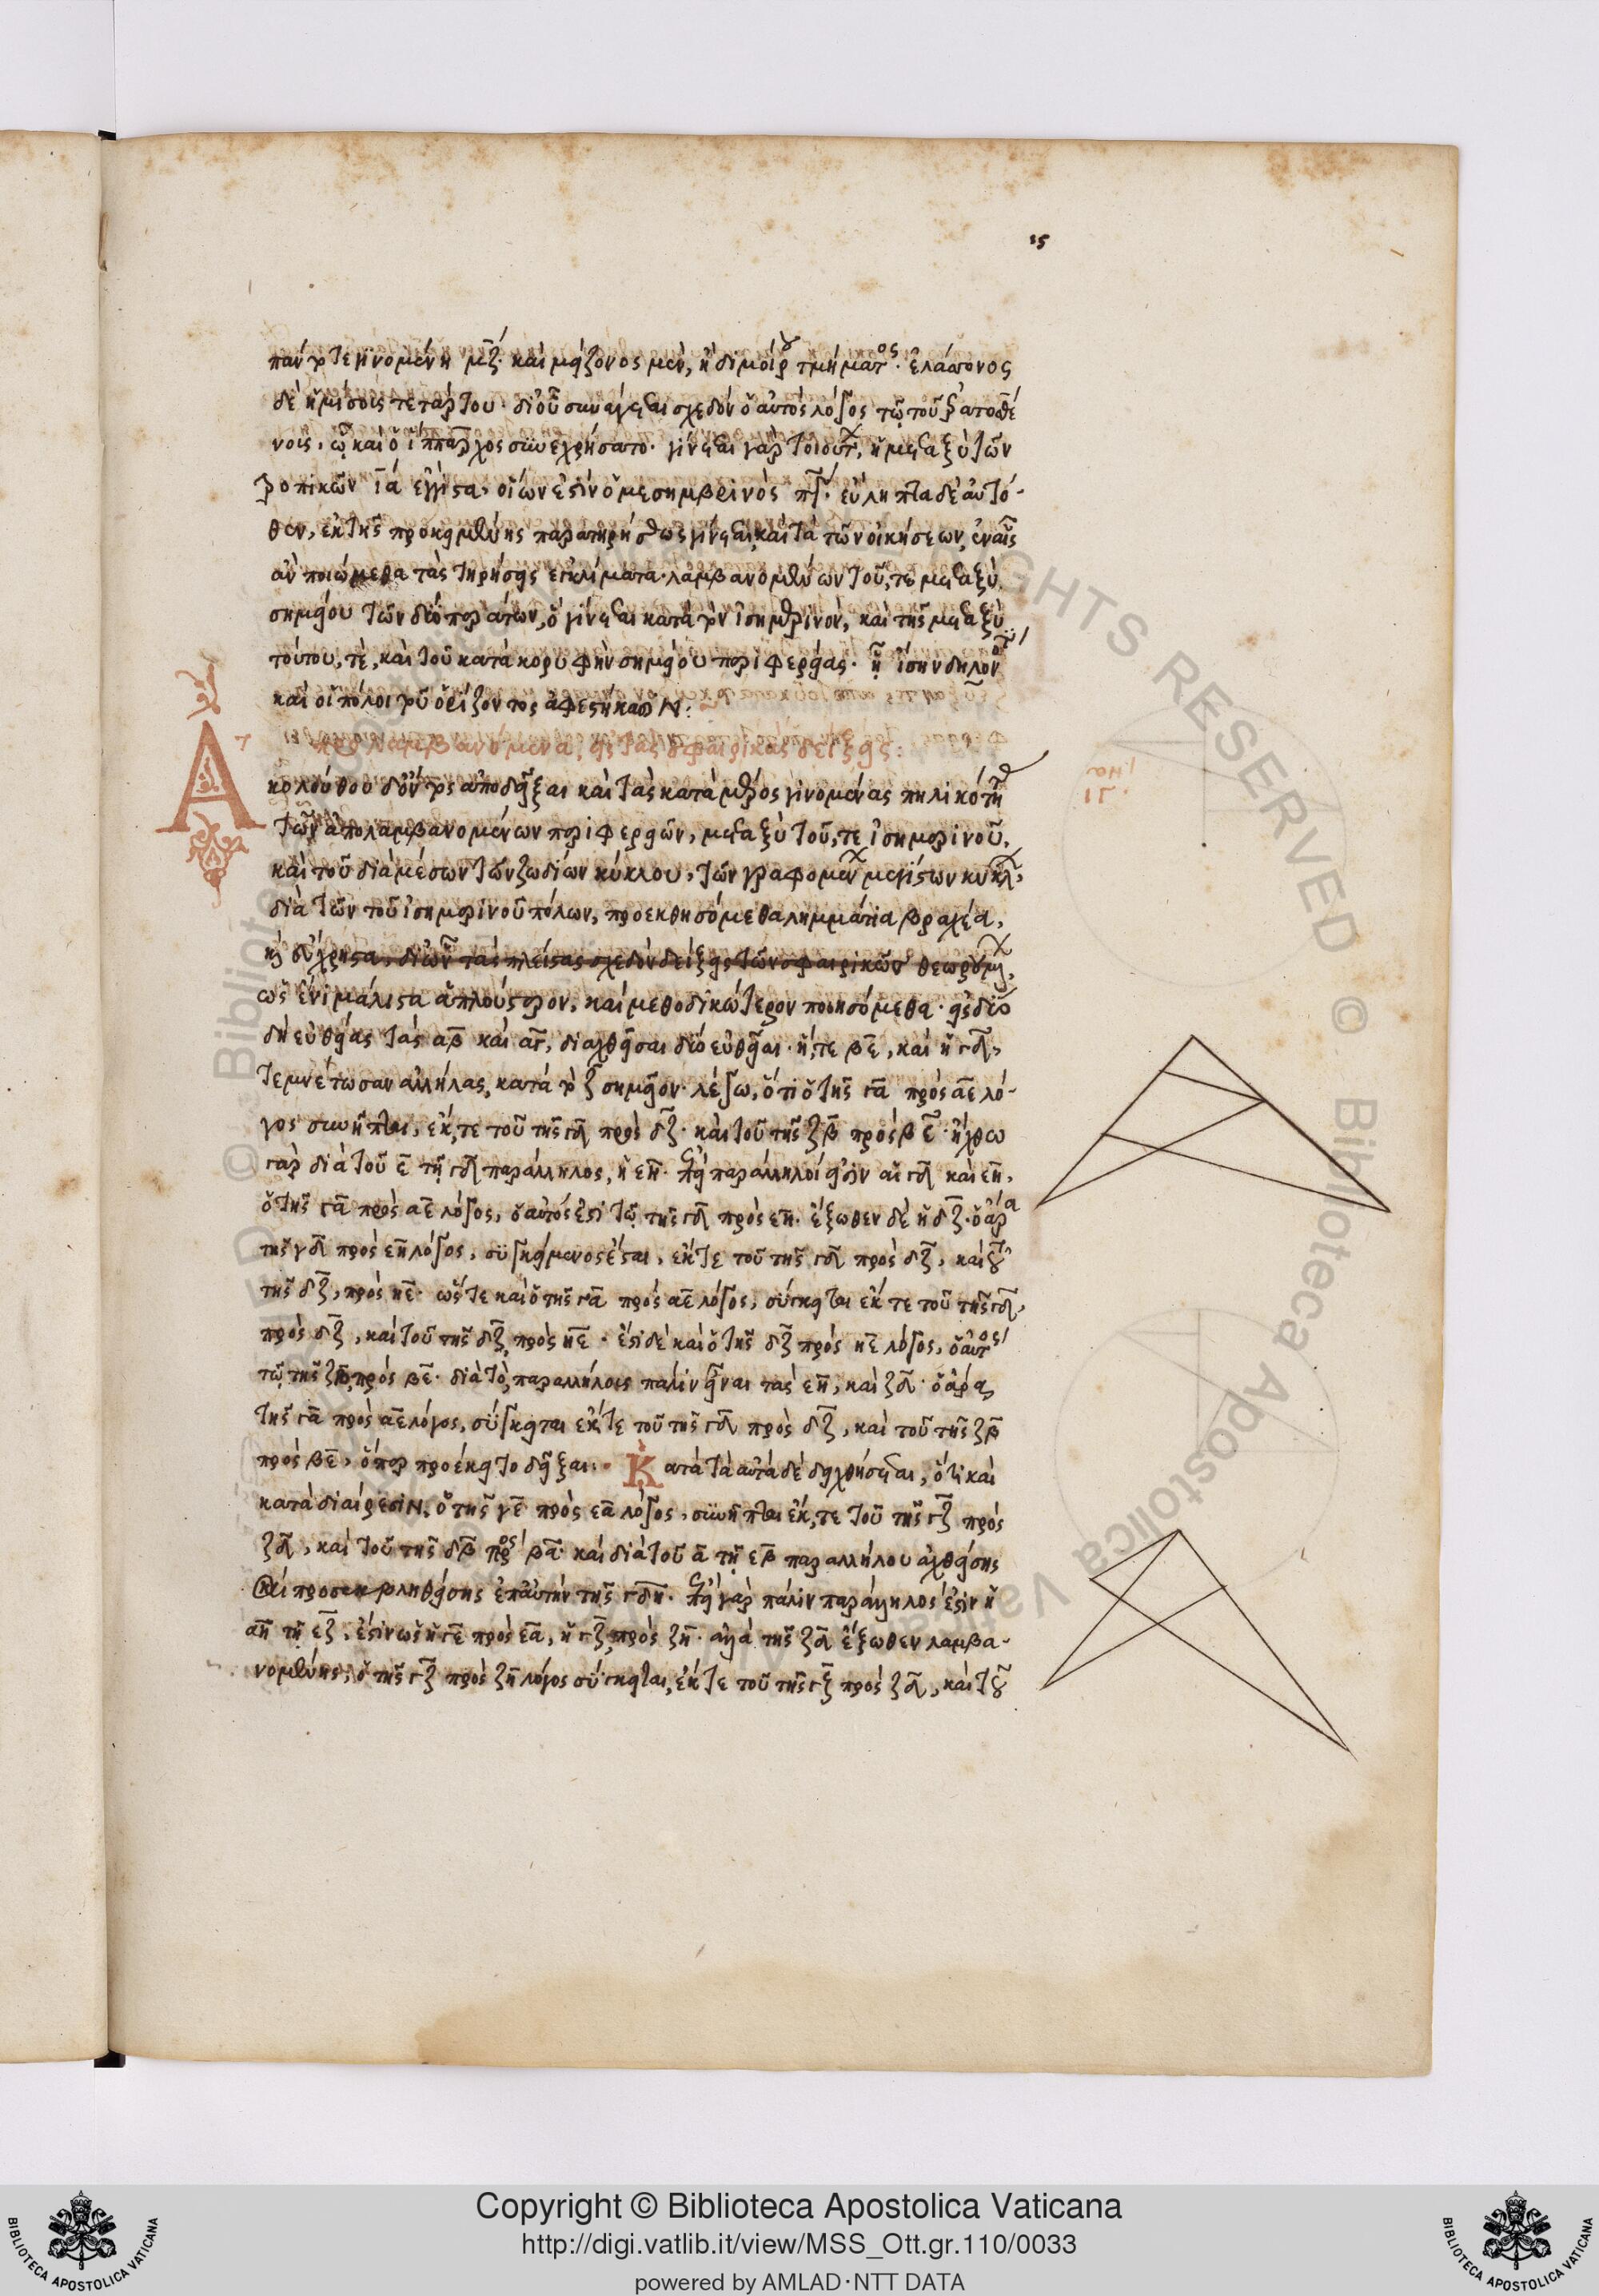 ις
πάντοτε γινομένη μζ. καὶ μείζονος μὲν, ἢ διμοίρου τμήματος. ἐλάττονος
δὲ ἡμίσους τετάρτου. δι' οὗ συνάγεται σχεδὸν ὁ αὐτὸς λόγος τῷ τοῦ ἐρατοσθέ
νους, ᾧ καὶ ὁ ἵππαρχος συνεχρήσατο. γίνεται γὰρ τοιούτων, ἡ μεταξὺ τῶν
τροπικῶν ια ἔγγιστα, οἵων ἐστὶν ὁ μεσημβρινὸς πγ. εὔληπτα δὲ αὐτό-
θεν, ἐκ τῆς προκειμένης παρατηρήσεως γίνεται, καὶ τὰ τῶν οἰκήσεων, ἐν αἷς
ἂν ποιώμεθα τὰς τηρήσεις ἐγκλίματα. λαμβανομένων τοῦ, τε μεταξὺ
σημείου τῶν δύο περάτων, ὃ γίνεται κατὰ τὸν ἰσημερινὸν, καὶ τῆς μεταξὺ
τούτου, τὲ, καὶ τοῦ κατὰ κορυφὴν σημείου περιφερείας. ᾗ ἴσην δηλονότι
καὶ οἱ πόλοι τοῦ ὁρίζοντος ἀφεστήκασιν:
προλαμβανόμενα, εἰς τὰς σφαιρικὰς δείξεις:
Ἀκολούθου δ' ὄντος ἀποδεῖξαι καὶ τὰς κατὰ μέρος γινομένας πηλικότητας
τῶν ἀπολαμβανομένων περιφερειῶν, μεταξὺ τοῦ, τε ἰσημερινοῦ,
καὶ τοῦ διὰ μέσων τῶν ζωδίων κύκλου, τῶν γραφομένων μεγίστων κύκλων,
διὰ τῶν τοῦ ἰσημερινοῦ πόλων, προεκθησόμεθα λημμάτια βραχέα,
καὶ εὔχρηστα, δι' ὧν τὰς πλείστας σχεδὸν δείξεις τῶν σφαιρικῶς θεωρουμένων,
ὡς ἔνι μάλιστα ἁπλούστερον, καὶ μεθοδικώτερον ποιησόμεθα. εἰς δύο
δὴ εὐθείας τὰς αβ καὶ αγ, διαχθεῖσαι δύο εὐθεῖαι. ἥ, τε βε, καὶ ἡ γδ,
τεμνέτωσαν ἀλλήλας, κατὰ τὸ ζ σημεῖον. λέγω, ὅτι ὁ τῆς γα πρὸς αε λό-
γος συνῆπται, ἔκ, τε τοῦ τῆς γδ πρὸς δζ. καὶ τοῦ τῆς ζβ πρὸς βε. ἤχθω
γὰρ διὰ τοῦ ε τῇ γδ παράλληλος, ἡ εη. ἐπεὶ παράλληλοί εἰσιν αἱ γδ καὶ εη.
ὁ τῆς γα πρὸς αε λόγος, ὁ αὐτός ἐστι τῷ τῆς γδ πρὸς εη. ἔξωθεν δὲ ἡ δζ. ὁ ἄρα
τῆς γδ πρὸς εη λόγος, συγκείμενος ἔσται, ἔκ τε τοῦ τῆς γδ πρὸς δζ, καὶ τοῦ
τῆς δζ, πρὸς ηε. ὥστε καὶ ὁ τῆς γα πρὸς αε λόγος, σύγκειται ἔκ τε τοῦ τῆς γδ,
πρὸς δζ, καὶ τοῦ τῆς δζ, πρὸς ηε. ἔστι δὲ καὶ ὁ τῆς δζ πρὸς ηε λόγος, ὁ αὐτὸς
τῷ τῆς ζβ, πρὸς βε. διὰ τὸ, παραλλήλους πάλιν εἶναι τὰς εη, καὶ ζδ. ὁ ἄρα
τῆς γα πρὸς αε λόγος, σύγκειται ἔκ τε τοῦ τῆς γδ πρὸς δζ, καὶ τοῦ τῆς ζβ
πρὸς βε, ὅπερ προέκειτο δεῖξαι. Κατὰ τὰ αὐτὰ δὲ δειχθήσεται, ὅτι καὶ
κατὰ διαίρεσιν, ὁ τῆς γε πρὸς εα λόγος, συνῆπται ἔκ, τε τοῦ τῆς γζ πρὸς
ζδ, καὶ τοῦ τῆς δβ πρὸς βα. καὶ διὰ τοῦ α τῇ εβ παραλλήλου ἀχθείσης
καὶ προσεκβληθείσης ἐπ' αὐτὴν τῆς γδη. ἐπεὶ γὰρ πάλιν παράλληλός ἐστιν ἡ
αη τῇ εζ, ἔστιν ὡς ἡ γε πρὸς εα, ἡ γζ, πρὸς ζη. ἀλλὰ τῆς ζδ ἔξωθεν λαμβα-
νομένης, ὁ τῆς γζ πρὸς ζη λόγος σύγκειται, ἔκ τε τοῦ τῆς γζ πρὸς ζδ, καὶ τοῦ
Copyright © Biblioteca Apostolica Vaticana
http://digi.vatlib.it/view/MSS_Ott.gr.110/0033
powered by AMLAD·NTT DATA
BIBLIOTECA APOSTOLICA VATICANA
BIBLIOTECA APOSTOLICA VATICANA